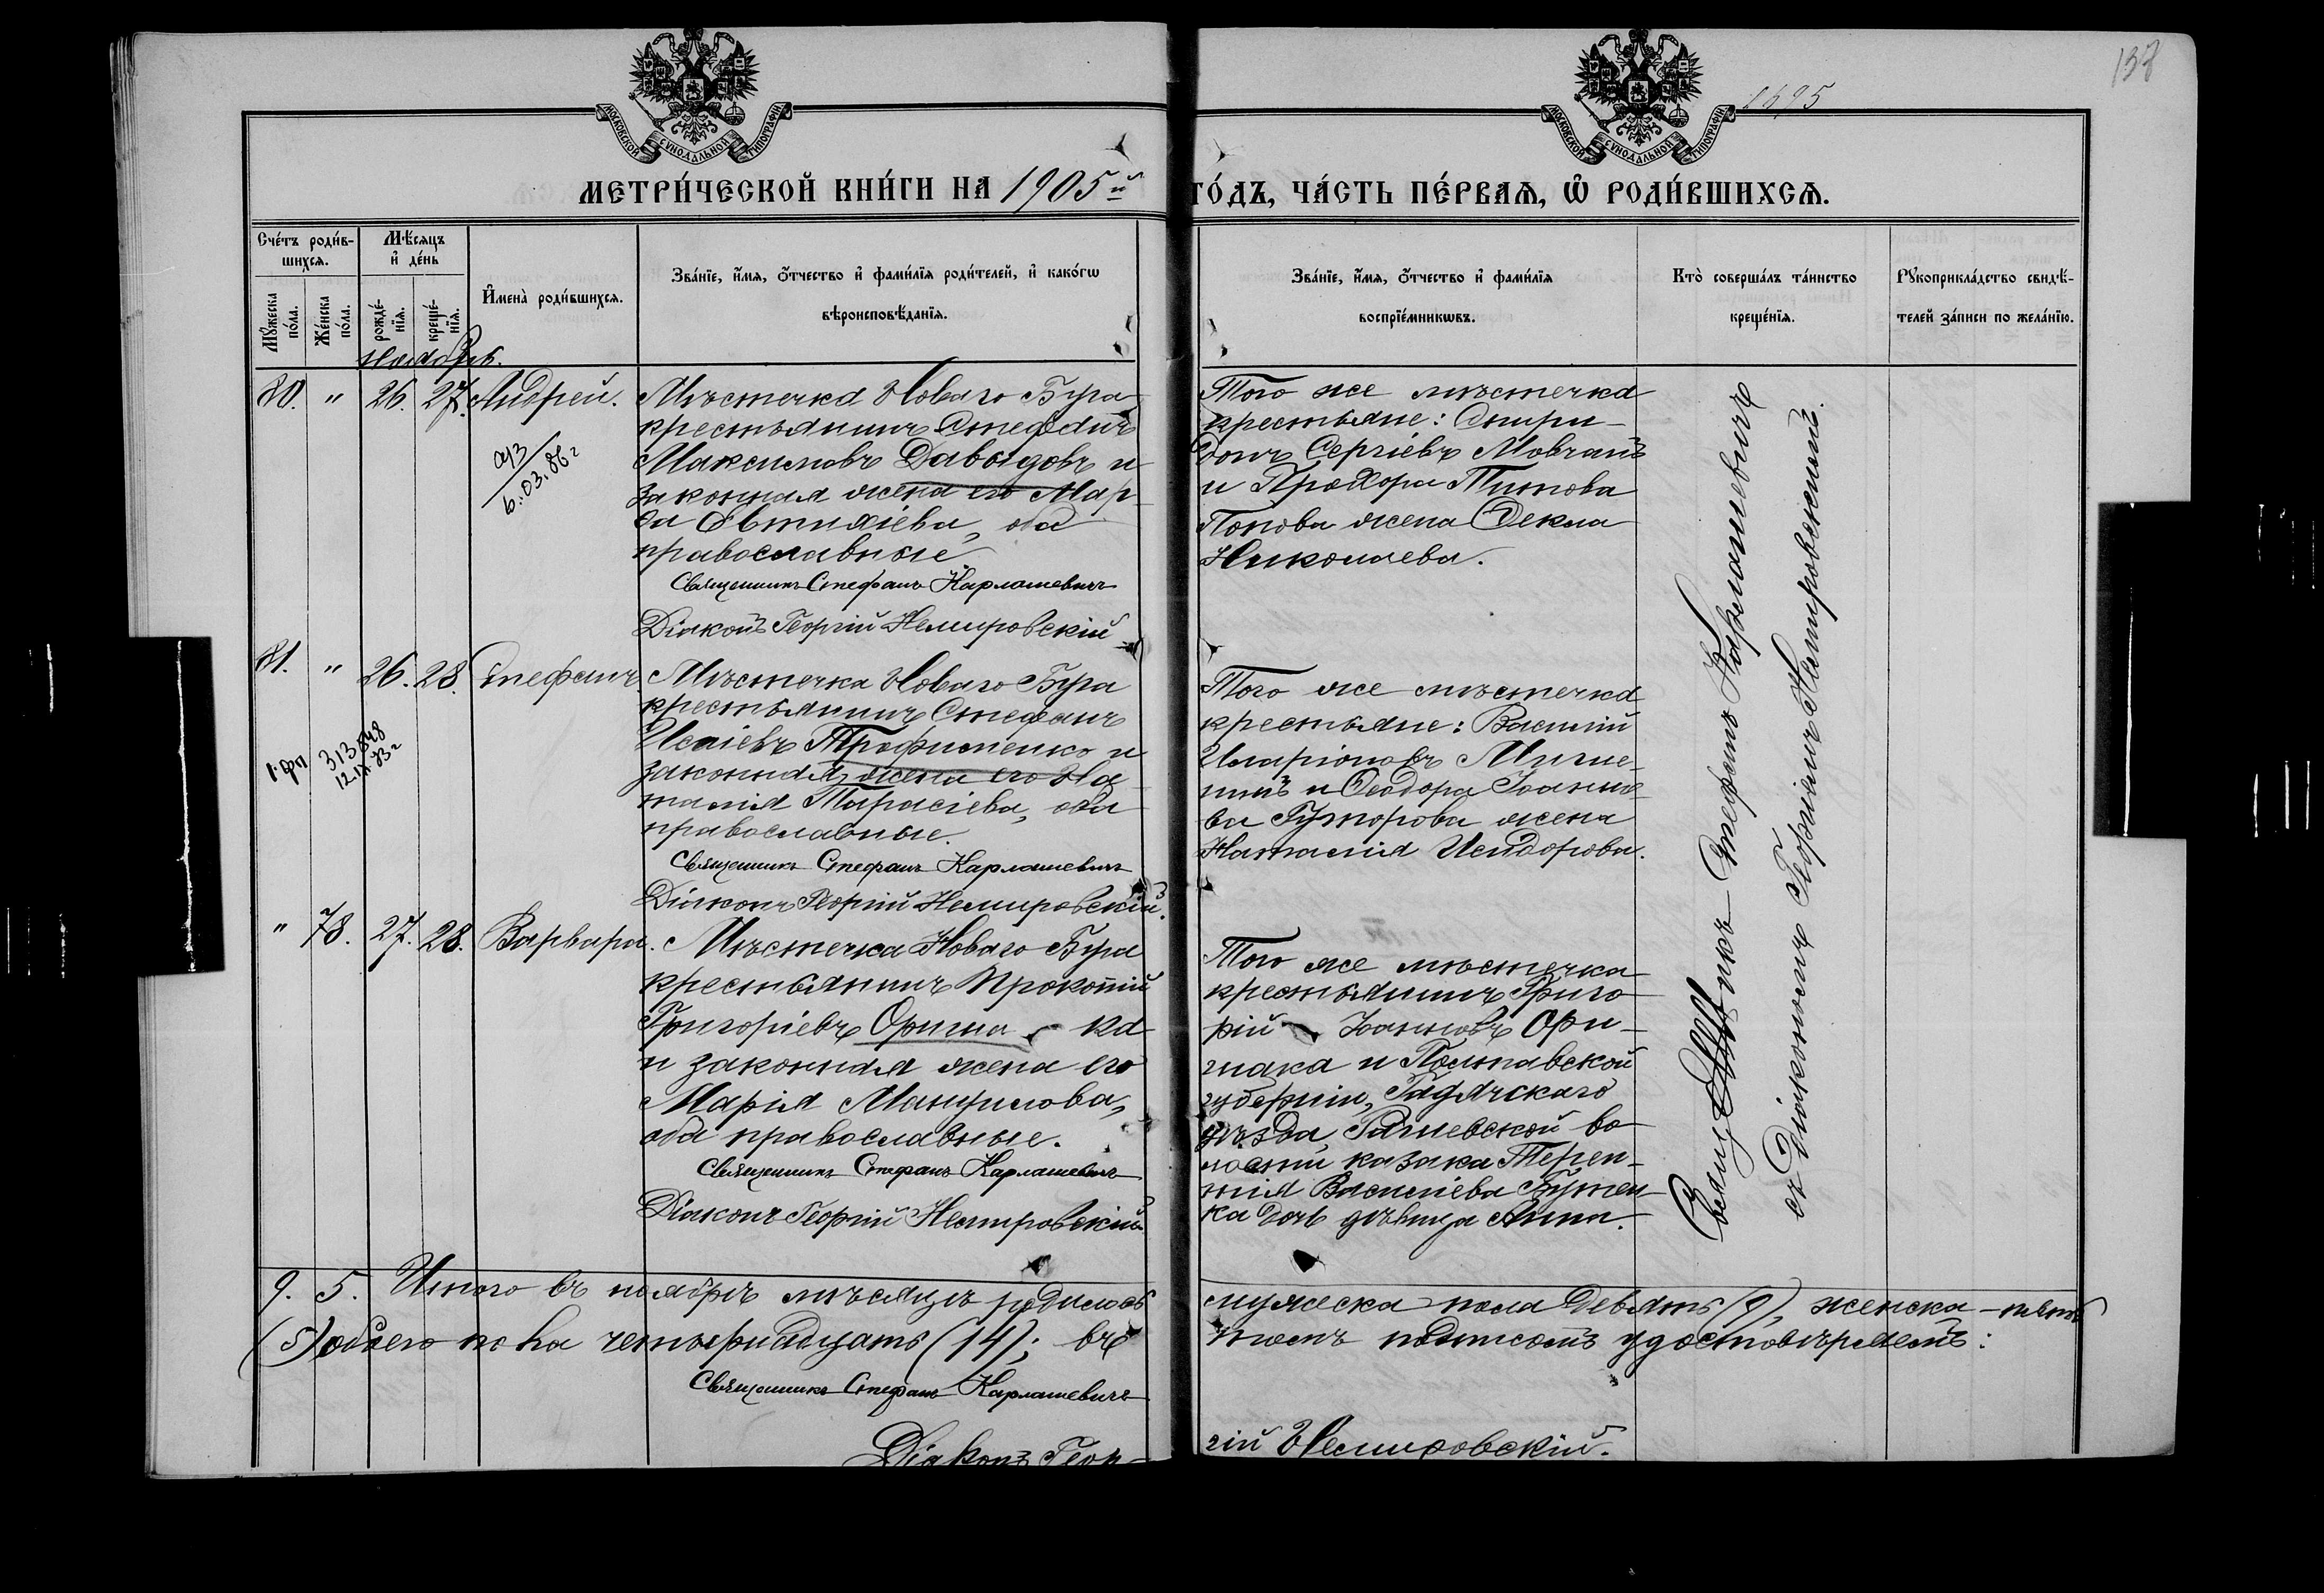 138
1895
МОСКОВСКОЙ СѴНОДАЛЬНОЙ ТИПОГРАФІИ
МОСКОВСКОЙ СѴНОДАЛЬНОЙ ТИПОГРАФІИ
МЕТРИ́ЧЕСКОЙ КНИ́ГИ НА 1905й
ГО́ДЪ, ЧА́СТЬ ПЕ́РВАѦ, Ѿ РОДИ́ВШИХСѦ.
Сче́тъ роди́в-
шихсѧ.
Мѣ́сяцъ
и҆ де́нь
Мꙋ́жеска
по́ла.
Же́нска
по́ла.
рожде́-
нїѧ.
креще́-
нїѧ.
И҆мена̀ роди́вшихсѧ.
Зва́нїе, и҆́мѧ, ѻ҆́тчество и҆ фами́лїѧ роди́телей, и҆ како́гѡ
вѣроисповѣ́данїѧ.
Зва́нїе, и҆́мѧ, ѻ҆́тчество и҆ фами́лїѧ
воспрїе́мникѡвъ.
Кто̀ соверша́лъ та́инство
креще́нїѧ.
Рꙋкоприкла́дство свидѣ́-
телей за́писи по жела́нїю.
Ноябрь.
80. " 26. 27. Андрей.
Мѣстечка Новаго Буга
крестьянинъ Стефанъ
Максимовъ Давыдовъ и
законная жена его Мар-
ѳа Евтихіева, оба
православные
Священникъ Стефанъ Карлашевичъ
Діаконъ Георгій Немировскій
6.03.86г
Того же мѣстечка
крестьяне: Спири-
донъ Сергіевъ Мовчанъ
и Прохора Титова
Попова жена Ѳекла
Николаева.
81. " 26. 28. Стефанъ
Мѣстечка Новаго Буга
крестьянинъ Стефанъ
Исаіевъ Трофименко и
законная жена его На-
талія Тарасіева, оба
православные.
Священникъ Стефанъ Карлашевичъ
Діаконъ Георгій Немировскій.
313548
12.IX.83г
Того же мѣстечка
крестьяне: Василій
Иларіоновъ
и Ѳеодора Іоанно-
ва Гуторова жена
Наталія Исидорова.
" 78. 27. 28. Варвара.
Мѣстечка Новаго Буга
крестьянинъ Прокопій
Григоріевъ Оришака
и законная жена его
Марія Мануилова,
оба православные.
Священникъ Стефанъ Карлашевичъ
Діаконъ Георгій Немировскій
Того же мѣстечка
крестьянинъ Григо-
рій Іоанновъ Ори-
шака и Полтавской
губерніи, Гадячскаго
уѣзда, Рашевской во-
лости казака Терен-
тія Василіева Бутен-
ка дочь дѣвица Анна.
Священникъ Стефанъ Карлашевичъ
съ Діакономъ Георгіемъ Немировскимъ.
9. 5. Итого въ ноябрѣ мѣсяцѣ родилось
мужеска пола девять (9), женска - пять
(5) обоего пола четырнадцать (14); въ
томъ подписомъ удостовѣряемъ:
Священникъ Стефанъ Карлашевичъ
Діаконъ Геор-
гій Немировскій.